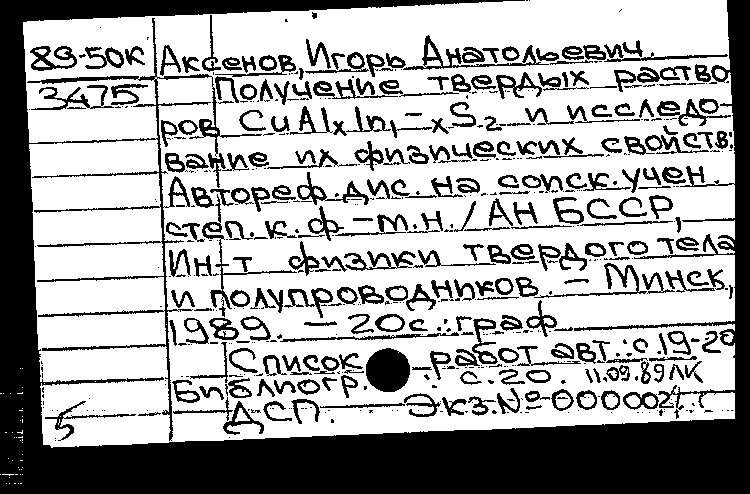 89-50К Аксенов, Игорь Анатольевич.
3475 Получение твердых раство-
ров CuAlxIn1-xS2 и исследо-
вание их физических свойств:
Автореф. дис. на соиск. учен.
степ. к. ф.-м. н. / АН БССР,
Ин-т физики твердого тела
и полупроводников. - Минск,
1989. - 20 с.: граф
Список работ авт.: с. 19-20
Библиогр.: с. 20. 11.09.89 ЛК
5 ДСП. Экз. №